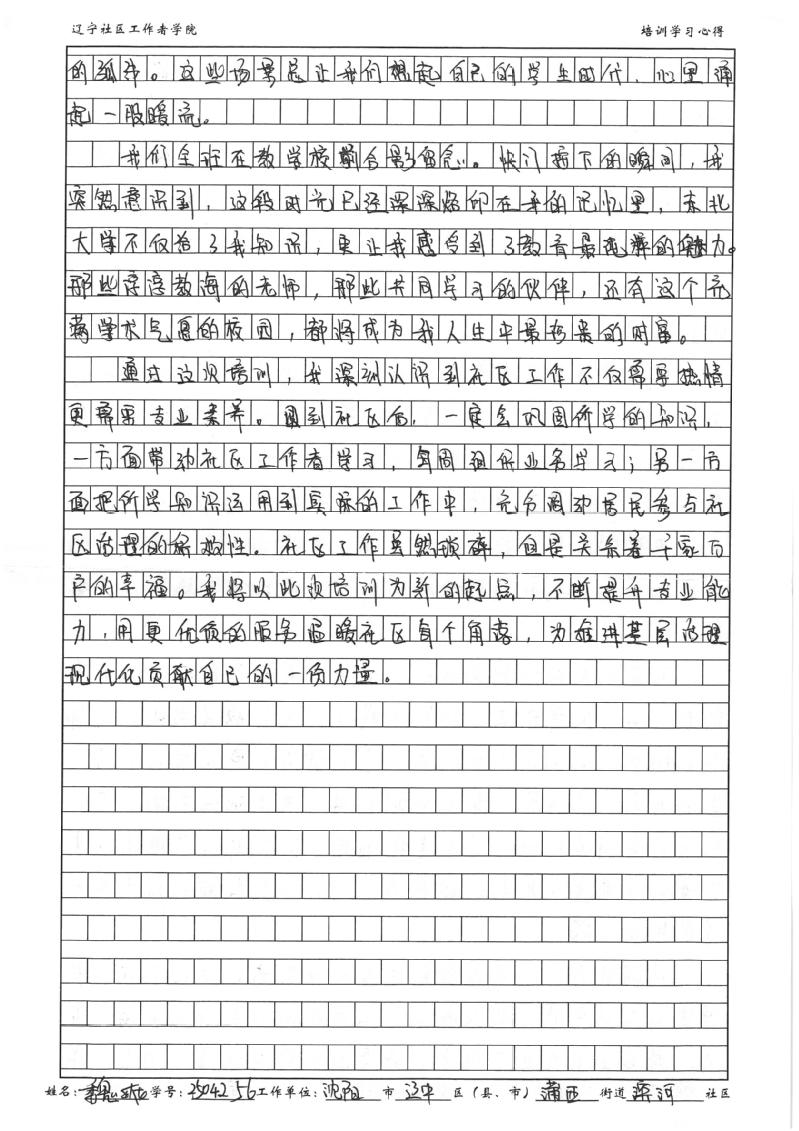 辽宁社区工作者学院 培训学习心得
的弧线。这些场景总让我们想起自己的学生时代，心里涌
起一股暖流。
我们全班在教学校前合影留念。快门按下的瞬间，我
突然意识到，这段时光已经深深烙印在我的记忆里，东北
大学不仅给了我知识，更让我感受到了教育最纯粹的魅力。
那些谆谆教诲的老师，那些共同学习的伙伴，还有这个充
满学术气息的校园，都将成为我人生中最珍贵的财富。
通过这次培训，我深刻认识到社区工作不仅需要热情
更需要专业素养。回到社区后，一定会巩固所学的知识，
一方面带动社区工作者学习，每周组织业务学习；另一方
面把所学知识运用到实际的工作中，充分调动居民参与社
区治理的积极性。社区工作虽然琐碎，但是关系着千家万
户的幸福。我将以此次培训为新的起点，不断提升专业能
力，用更优质的服务温暖社区每个角落，为推进基层治理
现代化贡献自己的一份力量。
姓名：魏 学号：2504256 工作单位：沈阳 市 辽中 区（县、市） 蒲西 街道 滨河 社区